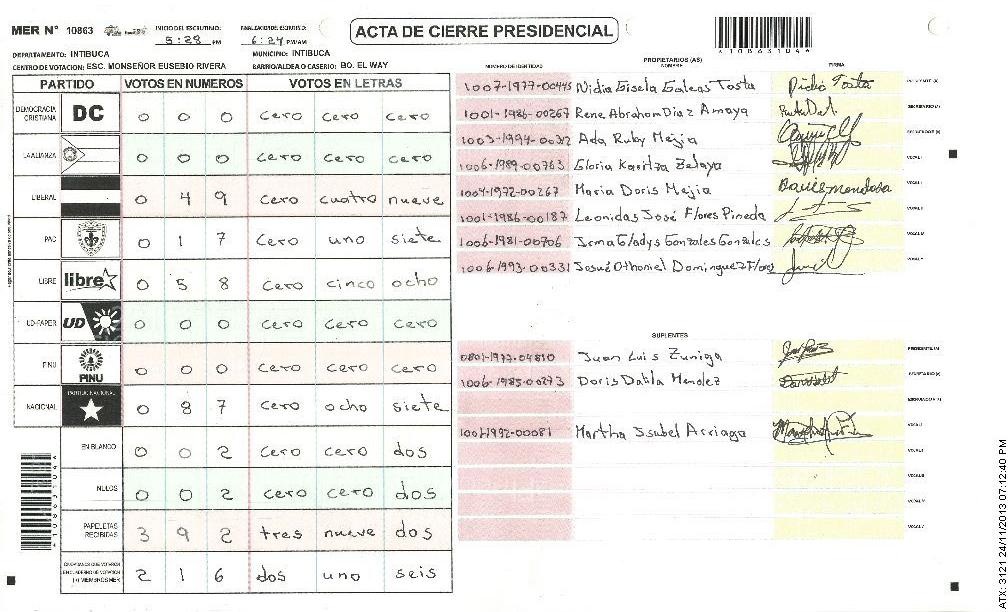 MER N° 10863
INICIO DEL ESCRUTINIO: 5:28 PM
FINALIZACION ESCRUTINIO: 6:24 PM/AM
ACTA DE CIERRE PRESIDENCIAL
*108631046*
DEPARTAMENTO: INTIBUCA
MUNICIPIO: INTIBUCA
CENTRO DE VOTACION: ESC. MONSEÑOR EUSEBIO RIVERA
BARRIO/ALDEA O CASERIO: BO. EL WAY
PARTIDO VOTOS EN NUMEROS VOTOS EN LETRAS
DEMOCRACIA CRISTIANA DC 0 0 0 cero cero cero
LA ALIANZA 0 0 0 cero cero cero
LIBERAL 0 4 9 cero cuatro nueve
PAC 0 1 7 cero uno siete
LIBRE libre 0 5 8 cero cinco ocho
UD-FAPER UD 0 0 0 cero cero cero
PINU PINU 0 0 0 cero cero cero
NACIONAL PARTIDO NACIONAL 0 8 7 cero ocho siete
EN BLANCO 0 0 2 cero cero dos
NULOS 0 0 2 cero cero dos
PAPELETAS RECIBIDAS 3 9 2 tres nueve dos
CIUDADANOS QUE VOTARON EN CUADERNO DE VOTACION (+) MIEMBROS MER 2 1 6 dos uno seis
PROPIETARIOS (AS)
NUMERO DE IDENTIDAD NOMBRE FIRMA
1007-1977-00445 Nidia Gisela Galeas Tosta PRESIDENTE (A)
1001-1986-00267 Rene Abraham Diaz Amaya SECRETARIO (A)
1003-1994-00312 Ada Ruby Mejia ESCRUTADOR (A)
1006-1989-00763 Gloria Karitza Zelaya VOCAL I
1004-1972-00267 Maria Doris Mejia VOCAL II
1001-1986-00187 Leonidas José Flores Pineda VOCAL III
1006-1981-00706 Irma Gladys Gonzales Gonzales VOCAL IV
1006-1993-00331 Josué Othoniel Dominguez Flores VOCAL V
SUPLENTES
0801-1977-04810 Juan Luis Zuniga PRESIDENTE (A)
1006-1985-00273 Doris Dalila Mendez SECRETARIO (A)
ESCRUTADOR (A)
1001-1992-00081 Martha Isabel Arriaga VOCAL I
VOCAL II
VOCAL III
VOCAL IV
VOCAL V
*108631046*
ATX: 3121 24/11/2013 07:12:40 PM